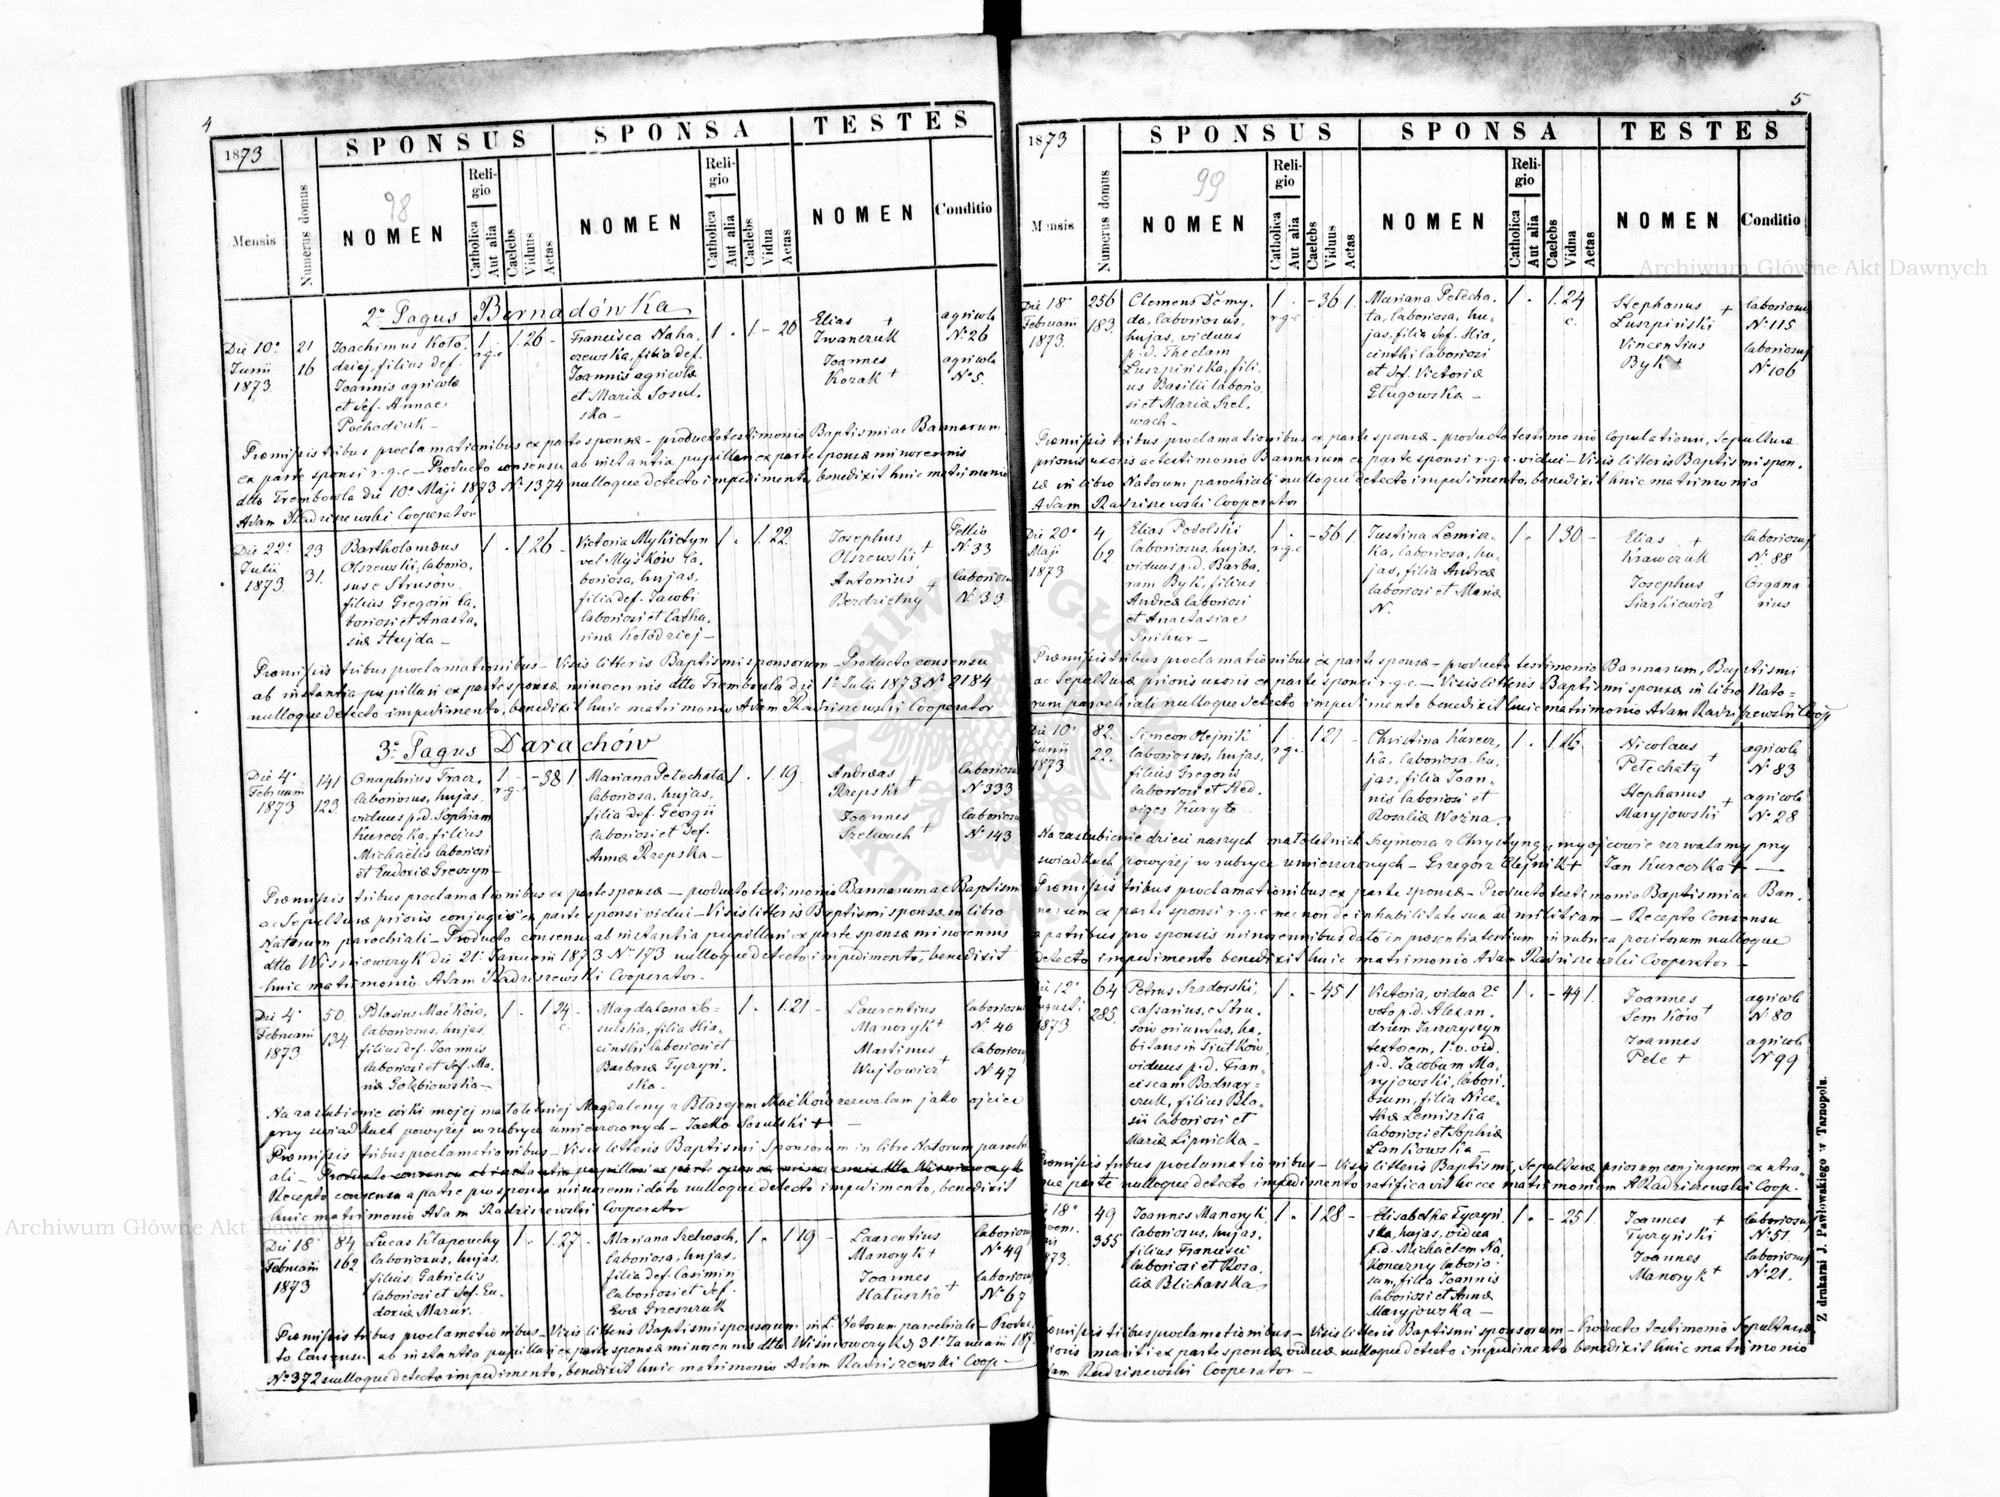 4
1873
SPONSUS
SPONSA
TESTES
Mensis
Numerus domus
98
NOMEN
Religio
Catholica
Aut alia
Caelebs
Viduus
Aetas
NOMEN
Religio
Catholica
Aut alia
Caelebs
Vidua
Aetas
NOMEN
Conditio
2º Pagus Bernadówka
Die 10º
Junii
1873
21
16
Joachimus Koło,
dziej, filius def.
Joannis agricolæ
et def. Annae
Pochodiuk –
1
r.g.c
1. 26 –
Francisca Naha,
czewska, filia def.
Joannis agricolæ
et Mariæ Sosul,
ska –
1 . 1. – 20
Elias +
Iwanczuk
Joannes
Kozak +
agricola
Nº 26
agricola
Nº 5.
Præmissis tribus proclamationibus ex parte sponsæ – producto testimonio Baptismi ac Bannorum
ex parte sponsi r.g.c – Producto consensu ab instantia pupillari ex parte sponsæ minorennis
ddto Trembowla die 10º Maji 1873 Nº 1374 nulloque detecto impedimento, benedixit huic matrimonio
Adam Radziszewski Cooperator
Die 22º
Julii
1873
23
31.
Bartholomæus
Olszewski, laborio,
sus e Strusów,
filius Gregorii la,
boriosi et Anasta,
siæ Hujda –
1 . 1 26 –
Victoria Mykietyn
vel Myśków la,
boriosa, hujas,
filia def. Jacobi
laboriosi et Catha,
rinæ Kołodziej –
1 . 1. 22.
Josephus
Olszewski +
Antonius
Bezdzietny +
Pellio
Nº 33
laboriosus
Nº 33
Præmissis tribus proclamationibus – Visis litteris Baptismi sponsorum – Producto consensu
ab instantia pupillari ex parte sponsæ minorennis ddto Trembowla die 1º Julii 1873 Nº 2184
nulloque detecto impedimento, benedixit huic matrimonio Adam Radziszewski Cooperator
3º Pagus Darachów
Die 4º
Februarii
1873
141
123
Onuphrius Tracz,
laboriosus, hujas,
viduus p.d. Sophiam
Kureczka, filius
Michaelis laboriosi
et Eudoxiæ Greczyn –
1
r.g.c
– 38 1
Mariana Petechata
laboriosa, hujas,
filia def. Georgii
laboriosi et def.
Annæ Rzepska –
1 . 1. 19.
Andreas
Rzepski +
Joannes
Szelwach +
laboriosus
Nº 333
laboriosus
Nº 143
Præmissis tribus proclamationibus ex parte sponsæ – producto testimonio Bannorum ac Baptismi
ac Sepulturæ prioris conjugis ex parte sponsi vidui – Visis litteris Baptismi sponsæ in libro
Natorum parochiali – Producto consensu ab instantia pupillari ex parte sponsæ minorennis
ddto Wiśniowczyk die 21º Januarii 1873 Nº 173 nulloque detecto impedimento, benedixit
huic matrimonio Adam Radziszewski Cooperator –
Die 4º
Februarii
1873
50
134
Blasius Maćków,
laboriosus, hujas,
filius def. Joannis
laboriosi et def. Ma,
riæ Gołębiowska –
1 . 1. 24 –
c.
Magdalena So=
sulska, filia Hia,
cinthi laboriosi et
Barbaræ Tyczyń,
ska –
1 . 1. 21 –
Laurentius
Manoryk +
Martinus
Wujtowicz +
laboriosus
Nº 40
laboriosus
Nº 47
Na zaślubienie córki mojej małoletniej Magdaleny z Błażejem Maćków zezwalam jako ojciec
przy świadkach powyżej w rubryce umieszczonych – Jacko Sosulski + –
Præmissis tribus proclamationibus – Visis litteris Baptismi Sponsorum in libro Natorum parochi
ali – Producto consensu ab instantia pupillari ex parte sponsæ minorennis ddto Wiśniowczyk
Recepto consensu a patre pro sponsa minorenni dato nulloque detecto impedimento, benedixit
huic matrimonio Adam Radziszewski Cooperator
Die 18
Februarii
1873
84
162
Lucas Kłapouchy
laboriosus, hujas,
filius Gabrielis
laboriosi et def. Eu,
doxiæ Mazur.
1 . 1. 27 –
Mariana Szelwach,
laboriosa, hujas,
filia def. Casimiri
laboriosi et def.
Evæ Grzeszczuk
1 . 1 19 –
Laurentius
Manoryk +
Joannes
Hałuszko +
laboriosus
Nº 49
laboriosus
Nº 67
Præmissis tribus proclamationibus – Visis litteris Baptismi sponsorum in L. Natorum parochiali – Produc,
to Consensu ab instantia pupillari ex parte sponsæ minorennis ddto Wiśniowczyk d. 31º Januarii 187
Nº 372 nulloque detecto impedimento, benedixit huic matrimonio Adam Radziszewski Coop –
5
1873
SPONSUS
SPONSA
TESTES
Mensis
Numerus domus
99
NOMEN
Religio
Catholica
Aut alia
Caelebs
Viduus
Aetas
NOMEN
Religio
Catholica
Aut alia
Caelebs
Vidua
Aetas
NOMEN
Conditio
Die 18º
Februarii
1873.
256
183.
Clemens Demy,
da, laboriosus,
hujas, viduus
p.d. Theclam
Łuszpińska, fili,
us Basilii laborio,
si et Mariæ Szel,
wach –
1 .
r.g.c
– 36 1.
Mariana Petecha,
ta, laboriosa, hu,
jas, filia def. Hia,
cinthi laboriosi
et def. Victoriæ
Gługowska –
1 . 1. 24
c.
Stephanus +
Łuszpiński
Vincentius
Byk +
laboriosus
Nº 115
laboriosus
Nº 106
Præmissis tribus proclamationibus ex parte sponsæ – producto testimonio Copulationis, Sepulturæ
prioris uxoris ac testimonio Bannorum ex parte sponsi r.g.c. vidui – Visis litteris Baptismi spon,
sæ in libro Natorum parochiali nulloque detecto impedimento, benedixit huic matrimonio
Adam Radziszewski Cooperator
Die 20º
Maji
1873
4
62
Elias Podolski
laboriosus, hujas,
viduus p.d. Barba,
ram Byk, filius
Andreæ laboriosi
et Anastasiae
Snihur –
1 .
r.g.c
– 56 1
Justina Lemisz,
ka, laboriosa, hu,
jas, filia Andreæ
laboriosi et Mariæ
N.
1 . 1 30 –
Elias +
Krawczuk
Josephus
Siarkiewicz +
laboriosus
Nº. 88
Organa
rius
Præmissis tribus proclamationibus ex parte sponsæ – producto testimonio Bannorum, Baptismi
ac Sepulturæ prioris uxoris ex parte sponsi r.g.c. – Visis litteris Baptismi sponsæ in libro Nato=
rum parochiali nulloque detecto impedimento benedixit huic matrimonio Adam Radziszewski Coop
Die 10º
Junii
1873
82.
22.
Simeon Olejnik
laboriosus, hujas,
filius Gregorii
laboriosi et Hed,
viges Kuryło
1 .
r.g.c
1 21 –
Christina Kurecz,
ka, laboriosa, hu,
jas, filia Joan,
nis laboriosi et
Rosaliæ Wozna
1 . 1 16
Nicolaus
Petechaty +
Stephanus
Maryjowski +
agricola
Nº 83
agricola
Nº 28
Na zaślubienie dzieci naszych małoletnich Szymona z Chrystyną, my ojcowie zezwalamy przy
świadkach powyżej w rubryce umieszczonych – Gregorz Olejnik + Jan Kureczka + –
Præmissis tribus proclamationibus ex parte sponsæ – Producto testimonio Baptismi ac Ban,
norum ex parte sponsi r.g.c nec non de inhabilitate sua ad militiam – Recepto Consensu
a patribus pro sponsis minorennibus dato in præsentia testium in rubrica positorum nulloque
detecto impedimento benedixit huic matrimonio Adam Radziszewski Cooperator –
Die 12º
Augusti
1873
64
285
Petrus Szadorski,
cassarius, e Stru,
sów oriundus, ha,
bitans in Tiutków,
viduus p.d. Fran,
ciscam Bodnar=
czuk, filius Bla,
sii laboriosi et
Mariæ Lipnicka –
1 . – 45 1
Victoria, vidua 2º
voto p.d. Alexan,
drum Juszczyszyn
textorem, 1º v. vid.
p.d. Jacobum Ma,
ryjowski, labori,
osum, filia Nice,
thæ Lemiszka
laboriosi et Sophiæ
Lankowska –
1 . – 44 1
Joannes
Semków +
Joannes
Pele +
agricola
Nº 80
agricola
Nº 99
Præmissis tribus proclamationibus – Visis litteris Baptismi, Sepulturæ priorum conjugum ex utra,
que parte nulloque detecto impedimento ratificavit hocce matrimonium A Radziszewski Coop.
18º
Novem.
1873.
49
355
Joannes Manoryk,
laboriosus, hujas,
filius Francisci
laboriosi et Rosa,
liæ Blicharska
1 . 1 28 –
Elisabetha Tyczyń,
ska, hujas, vidua
p.d. Michaelem Na,
koneczny laborio,
sum, filia Joannis
laboriosi et Annæ
Maryjowska –
1 . – 25 1
Joannes +
Tyczyński
Joannes
Manoryk +
laboriosus
Nº 51.
laboriosus
Nº 21.
Præmissis tribus proclamationibus – Visis litteris Baptismi sponsorum – Producto testimonio Sepulturæ
prioris mariti ex parte sponsæ viduæ nulloque detecto impedimento benedixit huic matrimonio
Adam Radziszewski Cooperator –
Z drukarni J. Pawłowskiego w Tarnopolu.
Archiwum Główne Akt Dawnych
Archiwum Główne Akt Dawnych